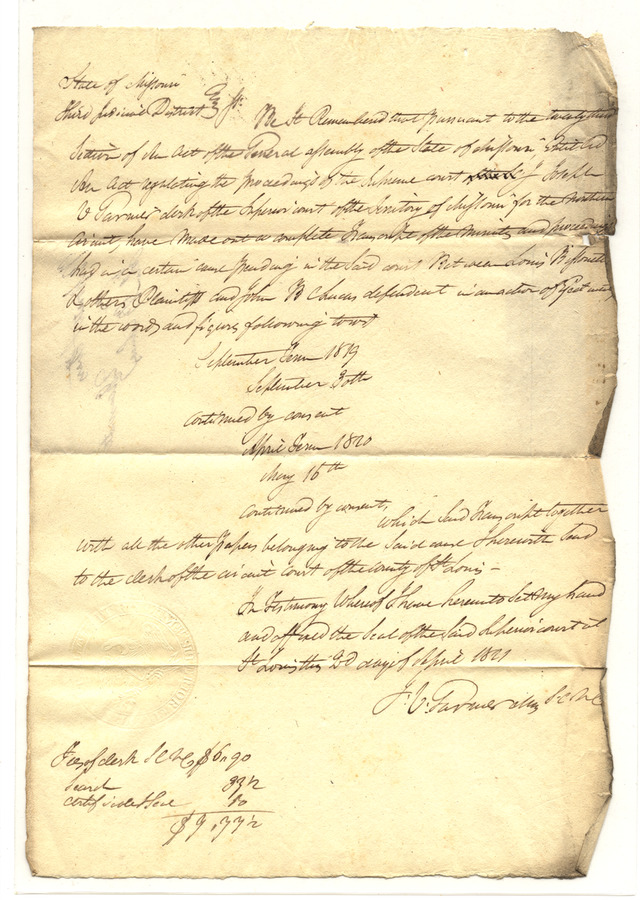 State of Missouri
third Judicial District Be It Remembered that pursuant to the twenty third
Section of An Act of the General assembly of the State of Missouri Entitled
An Act regulating the proceedings of the Supreme court Joseph
V Garnier clerk of the Superior court of the Territory of Missouri for the Northern
circuit have made out a complete Transcript of the minutes and proceedings
had in a certain cause pending in the said court Between Louis
& others Plaintiffs and John B C Lucas defendant in an action of
in the words and figures following towit
September Term 1819
September 30th
continued by consent
April Term 1820
May 16th
continued by consent,
which said Transcript together
with all the other papers belonging to the said cause I herewith send
to the clerk of the circuit court of the county of St Louis –
In Testimony Whereof I have hereunto set my hand
and affixed the seal of the said Superior court at
St Louis this 2d day of April 1821
J. V. Garnier clk S C N C
Fees of clerk S C N C $6.90
certificate & Seal